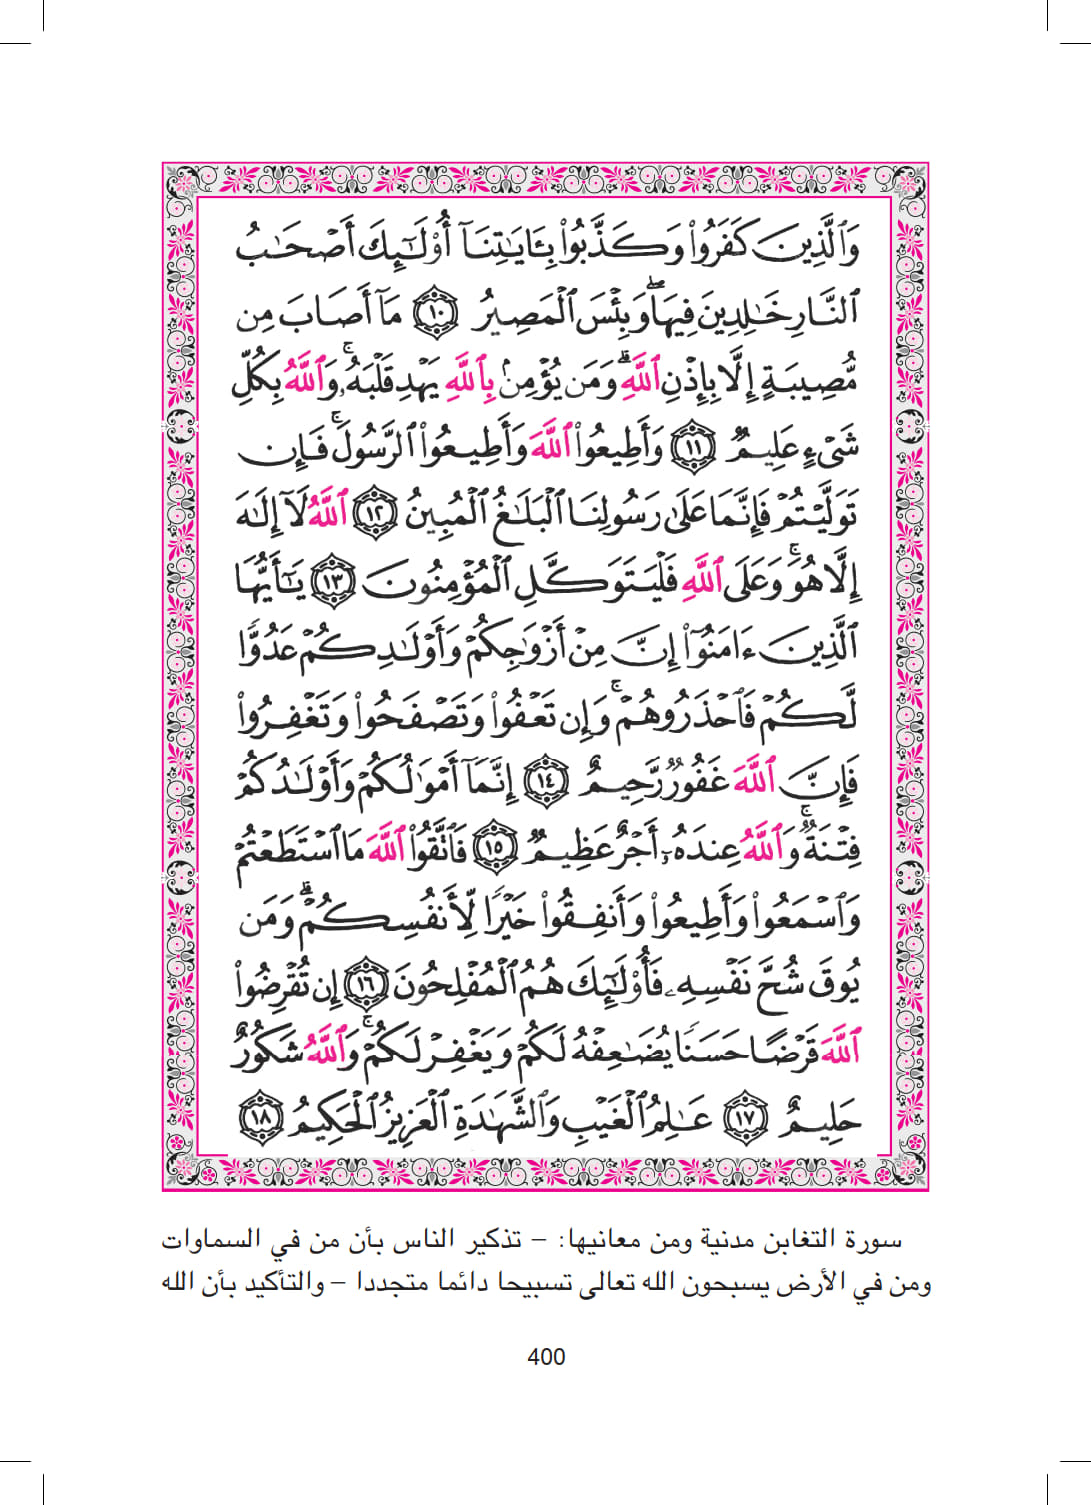 وَٱلَّذِينَ كَفَرُوا۟ وَكَذَّبُوا۟ بِـَٔايَـٰتِنَآ أُو۟لَـٰٓئِكَ أَصْحَـٰبُ
ٱلنَّارِ خَـٰلِدِينَ فِيهَا ۖ وَبِئْسَ ٱلْمَصِيرُ ١٠ مَآ أَصَابَ مِن
مُّصِيبَةٍ إِلَّا بِإِذْنِ ٱللَّهِ ۗ وَمَن يُؤْمِنۢ بِٱللَّهِ يَهْدِ قَلْبَهُۥ ۚ وَٱللَّهُ بِكُلِّ
شَىْءٍ عَلِيمٌ ١١ وَأَطِيعُوا۟ ٱللَّهَ وَأَطِيعُوا۟ ٱلرَّسُولَ ۚ فَإِن
تَوَلَّيْتُمْ فَإِنَّمَا عَلَىٰ رَسُولِنَا ٱلْبَلَـٰغُ ٱلْمُبِينُ ١٢ ٱللَّهُ لَآ إِلَـٰهَ
إِلَّا هُوَ ۚ وَعَلَى ٱللَّهِ فَلْيَتَوَكَّلِ ٱلْمُؤْمِنُونَ ١٣ يَـٰٓأَيُّهَا
ٱلَّذِينَ ءَامَنُوٓا۟ إِنَّ مِنْ أَزْوَٰجِكُمْ وَأَوْلَـٰدِكُمْ عَدُوًّا
لَّكُمْ فَٱحْذَرُوهُمْ ۚ وَإِن تَعْفُوا۟ وَتَصْفَحُوا۟ وَتَغْفِرُوا۟
فَإِنَّ ٱللَّهَ غَفُورٌ رَّحِيمٌ ١٤ إِنَّمَآ أَمْوَٰلُكُمْ وَأَوْلَـٰدُكُمْ
فِتْنَةٌ ۚ وَٱللَّهُ عِندَهُۥٓ أَجْرٌ عَظِيمٌ ١٥ فَٱتَّقُوا۟ ٱللَّهَ مَا ٱسْتَطَعْتُمْ
وَٱسْمَعُوا۟ وَأَطِيعُوا۟ وَأَنفِقُوا۟ خَيْرًا لِّأَنفُسِكُمْ ۗ وَمَن
يُوقَ شُحَّ نَفْسِهِۦ فَأُو۟لَـٰٓئِكَ هُمُ ٱلْمُفْلِحُونَ ١٦ إِن تُقْرِضُوا۟
ٱللَّهَ قَرْضًا حَسَنًا يُضَـٰعِفْهُ لَكُمْ وَيَغْفِرْ لَكُمْ ۚ وَٱللَّهُ شَكُورٌ
حَلِيمٌ ١٧ عَـٰلِمُ ٱلْغَيْبِ وَٱلشَّهَـٰدَةِ ٱلْعَزِيزُ ٱلْحَكِيمُ ١٨
سورة التغابن مدنية ومن معانيها: – تذكير الناس بأن من في السماوات
ومن في الأرض يسبحون الله تعالى تسبيحا دائما متجددا – والتأكيد بأن الله
400